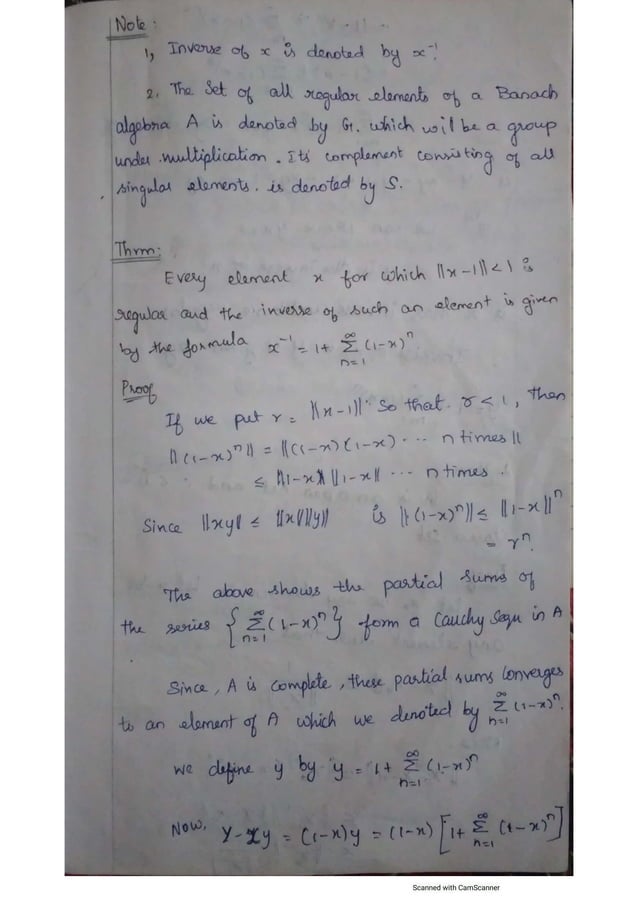 Note :
1, Inverse of x is denoted by x⁻¹.
2. The Set of all regular elements of a Banach
algebra A is denoted by G. which will be a group
under multiplication. Its complement consisting of all
singular elements. is denoted by S.
Thrm:
Every element x for which ||x-1|| < 1 is
regular and the inverse of such an element is given
by the formula x⁻¹ = 1 + ∞Σn=1 (1-x)ⁿ
Proof
If we put r = ||x-1||. So that r < 1, then
||(1-x)ⁿ|| = ||(1-x)(1-x) ... n times||
≤ ||1-x|| ||1-x|| ... n times.
Since ||xy|| ≤ ||x|| ||y|| is ||(1-x)ⁿ|| ≤ ||1-x||ⁿ
= rⁿ.
The above shows the partial sums of
the series { ∞Σn=1 (1-x)ⁿ } form a Cauchy Sequ in A
Since, A is complete, these partial sums converges
to an element of A which we denoted by ∞Σn=1 (1-x)ⁿ.
we define y by y = 1 + ∞Σn=1 (1-x)ⁿ
Now, y - xy = (1-x)y = (1-x) [1 + ∞Σn=1 (1-x)ⁿ]
Scanned with CamScanner